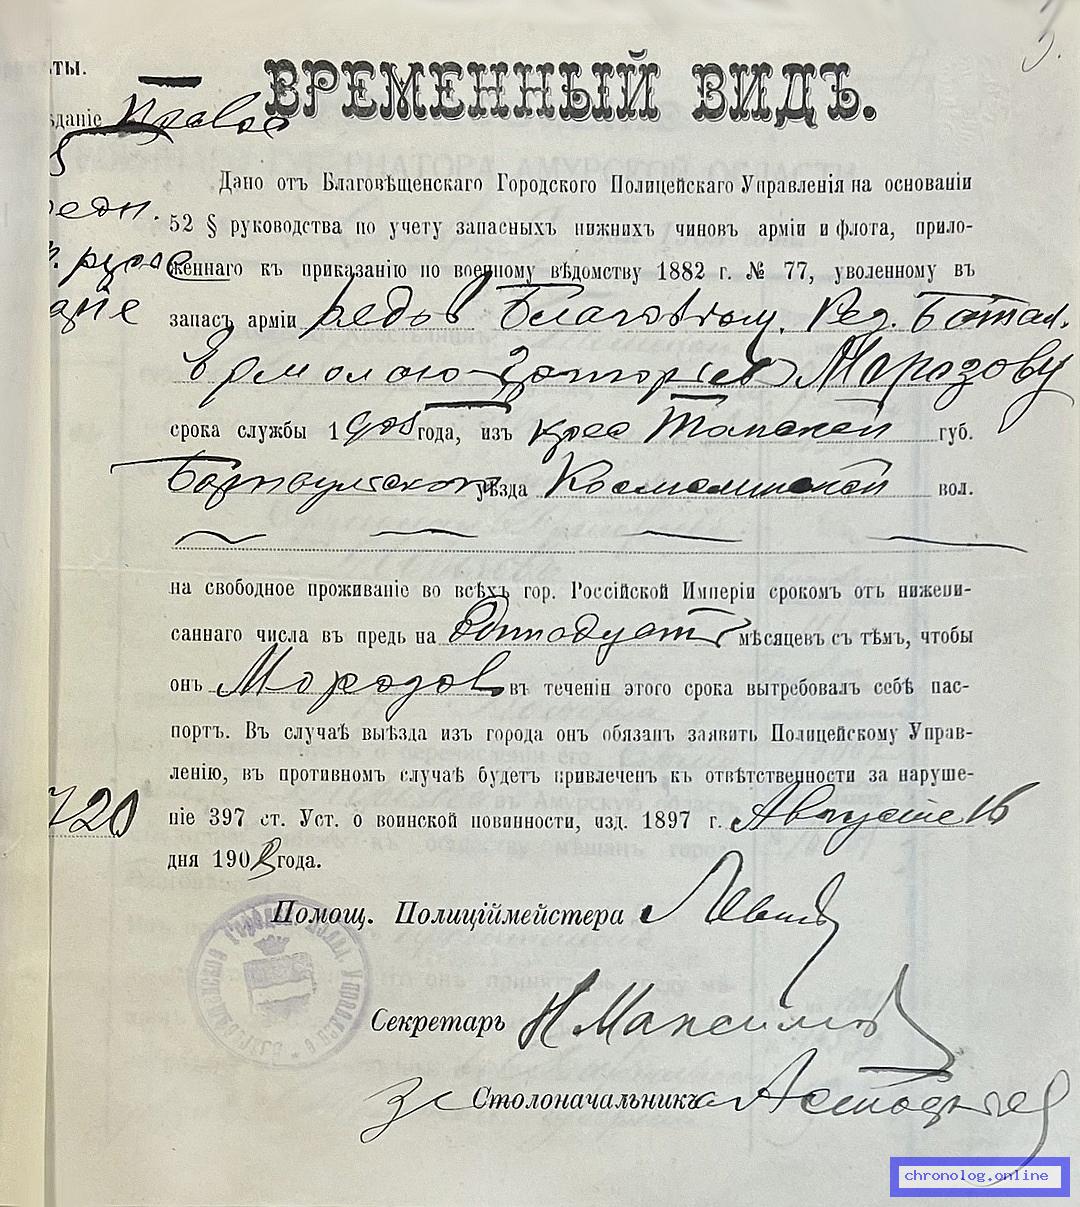 ты.
ВРЕМЕННЫЙ ВИДЪ.
даніе Право
Дано отъ Благовѣщенскаго Городского Полицейскаго Управленія на основаніи
едн.
52 § руководства по учету запасныхъ нижнихъ чиновъ арміи и флота, прило-
женнаго къ приказанію по военному вѣдомству 1882 г. № 77, уволенному въ
запасъ арміи Благовѣщ. Рез. Батал.
Ермолаю Морозову
срока службы 19 года, изъ крес Томской губ.
Барнаульскаго уѣзда Космалинской вол.
на свободное проживаніе во всѣхъ гор. Россійской Имперіи срокомъ отъ нижепи-
саннаго числа въ предь на двѣнадцать мѣсяцевъ съ тѣмъ, чтобы
онъ Морозов въ теченіи этого срока вытребовалъ себѣ пас-
портъ. Въ случаѣ выѣзда изъ города онъ обязанъ заявить Полицейскому Управ-
ленію, въ противномъ случаѣ будетъ привлеченъ къ отвѣтственности за наруше-
720
ніе 397 ст. Уст. о воинской повинности, изд. 1897 г. Августа 16
дня 190 года.
Помощ. Полиціймейстера
Секретарь Н Максимов
За Столоначальника
chronolog.online